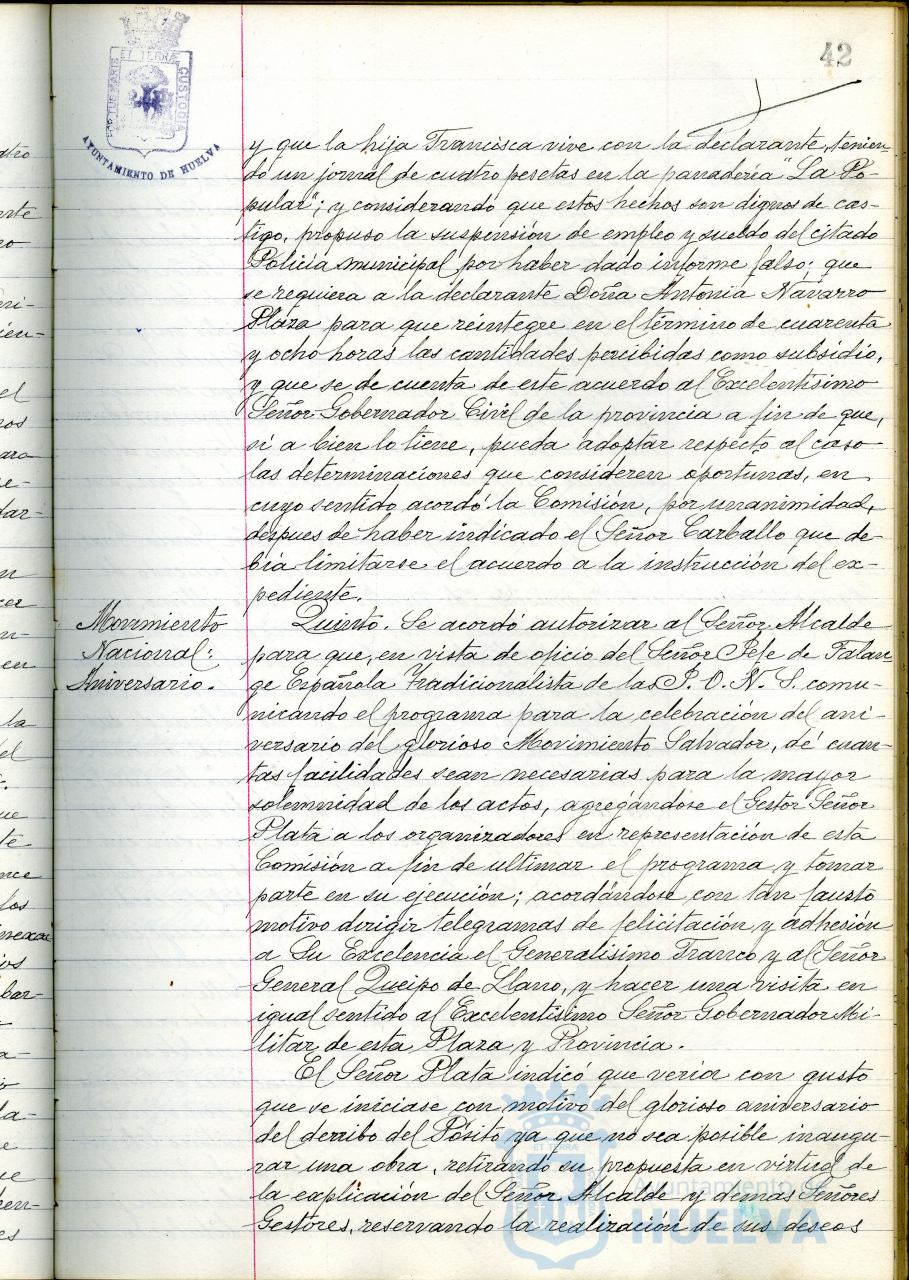 42
PORTUS MARIS ET TERRÆ CUSTODIA
AYUNTAMIENTO DE HUELVA
y que la hija Francisca vive con la declarante, tenien-
do un jornal de cuatro pesetas en la panadería "La Po-
pular"; y considerando que estos hechos son dignos de cas-
tigo, propuso la suspensión de empleo y sueldo del citado
Policía municipal por haber dado informe falso; que
se requiera a la declarante Doña Antonia Navarro
Plaza para que reintegre en el término de cuarenta
y ocho horas las cantidades percibidas como subsidio,
y que se de cuenta de este acuerdo al Excelentísimo
Señor Gobernador Civil de la provincia a fin de que,
si a bien lo tiene, pueda adoptar respecto al caso
las determinaciones que consideren oportunas, en
cuyo sentido acordó la Comisión, por unanimidad,
despues de haber indicado el Señor Carballo que de-
bía limitarse el acuerdo a la instrucción del ex-
pediente.
Movimiento
Nacional:
Aniversario.
Quinto. Se acordó autorizar al Señor Alcalde
para que, en vista de oficio del Señor Jefe de Falan-
ge Española Tradicionalista de las J. O. N. S. comu-
nicando el programa para la celebración del ani-
versario del glorioso Movimiento Salvador, dé cuan-
tas facilidades sean necesarias para la mayor
solemnidad de los actos, agregándose el Gestor Señor
Plata a los organizadores en representación de esta
Comisión a fin de ultimar el programa y tomar
parte en su ejecución; acordándose con tan fausto
motivo dirigir telegramas de felicitación y adhesión
a Su Excelencia el Generalísimo Franco y al Señor
General Queipo de Llano, y hacer una visita en
igual sentido al Excelentísimo Señor Gobernador Mi-
litar de esta Plaza y Provincia.
El Señor Plata indicó que vería con gusto
que se iniciase con motivo del glorioso aniversario
del derribo del Pósito ya que no sea posible inaugu-
rar una obra, retirando su propuesta en virtud de
la explicación del Señor Alcalde y demás Señores
Gestores, reservando la realización de sus deseos
Ayuntamiento de
HUELVA